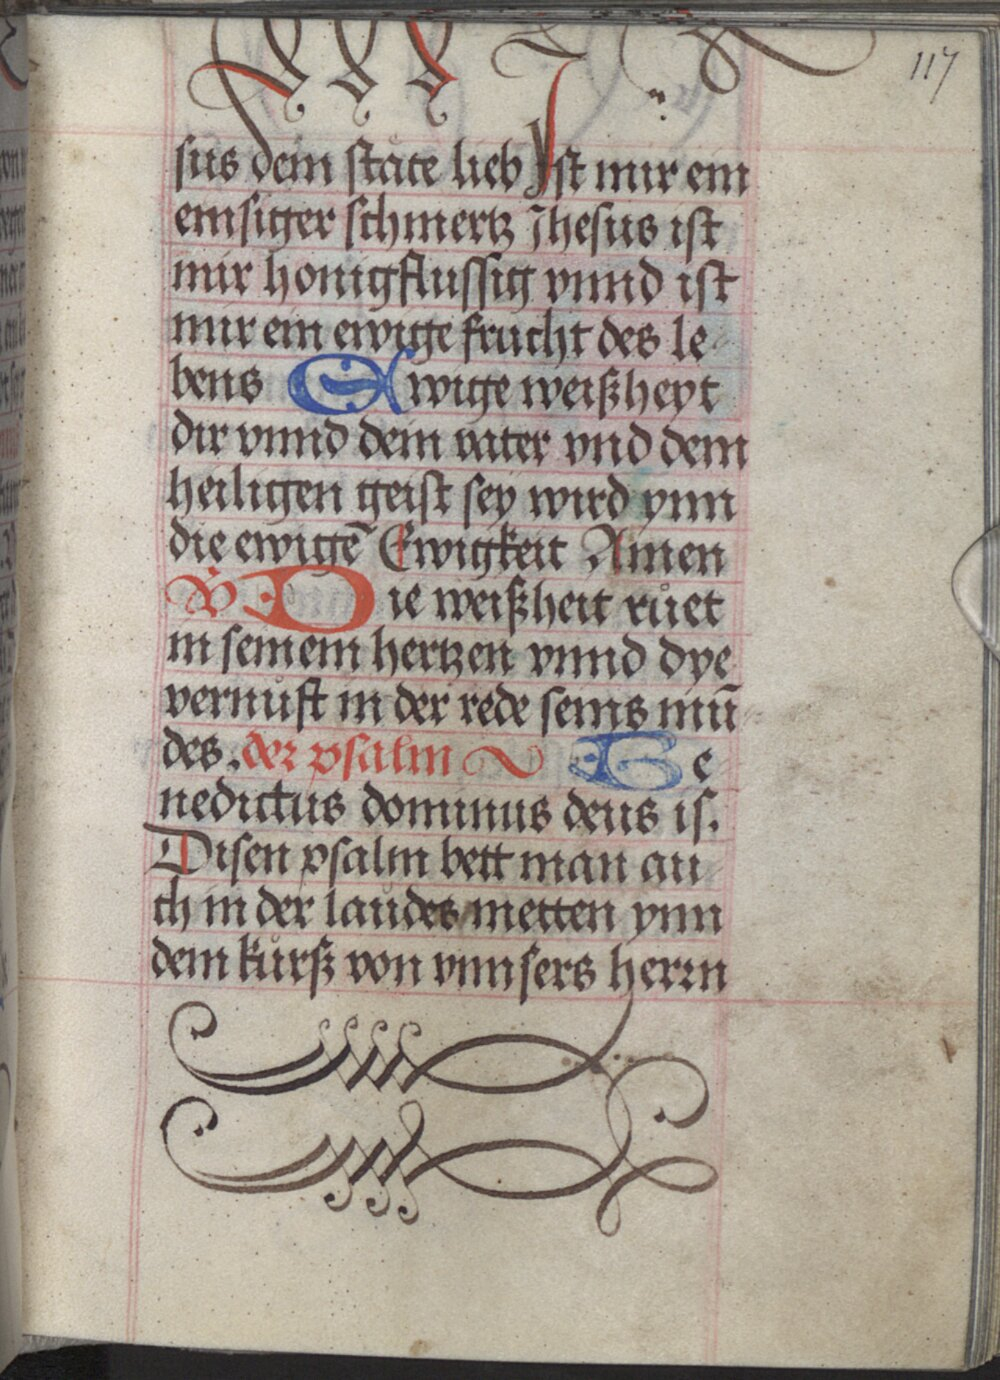 117
sus dein ståte lieb Ist mir ein
einsiger schmertz Jhesus ist
mir honigflussig vnnd ist
mir ein ewige frucht des le
bens Ewige weißheyt
dir vnnd dem vater vnd dem
heiligen geist sey wird ynn
die ewigē Ewigkeit Amen
V Die weißheit růet
in seinem hertzen vnnd dye
vernůft in der rede seins mū
des. der psalm Be
nedictus dominus deus is.
Disen psalm bett man au
ch in der laudes metten ynn
dem kürß von vnnsers herrn